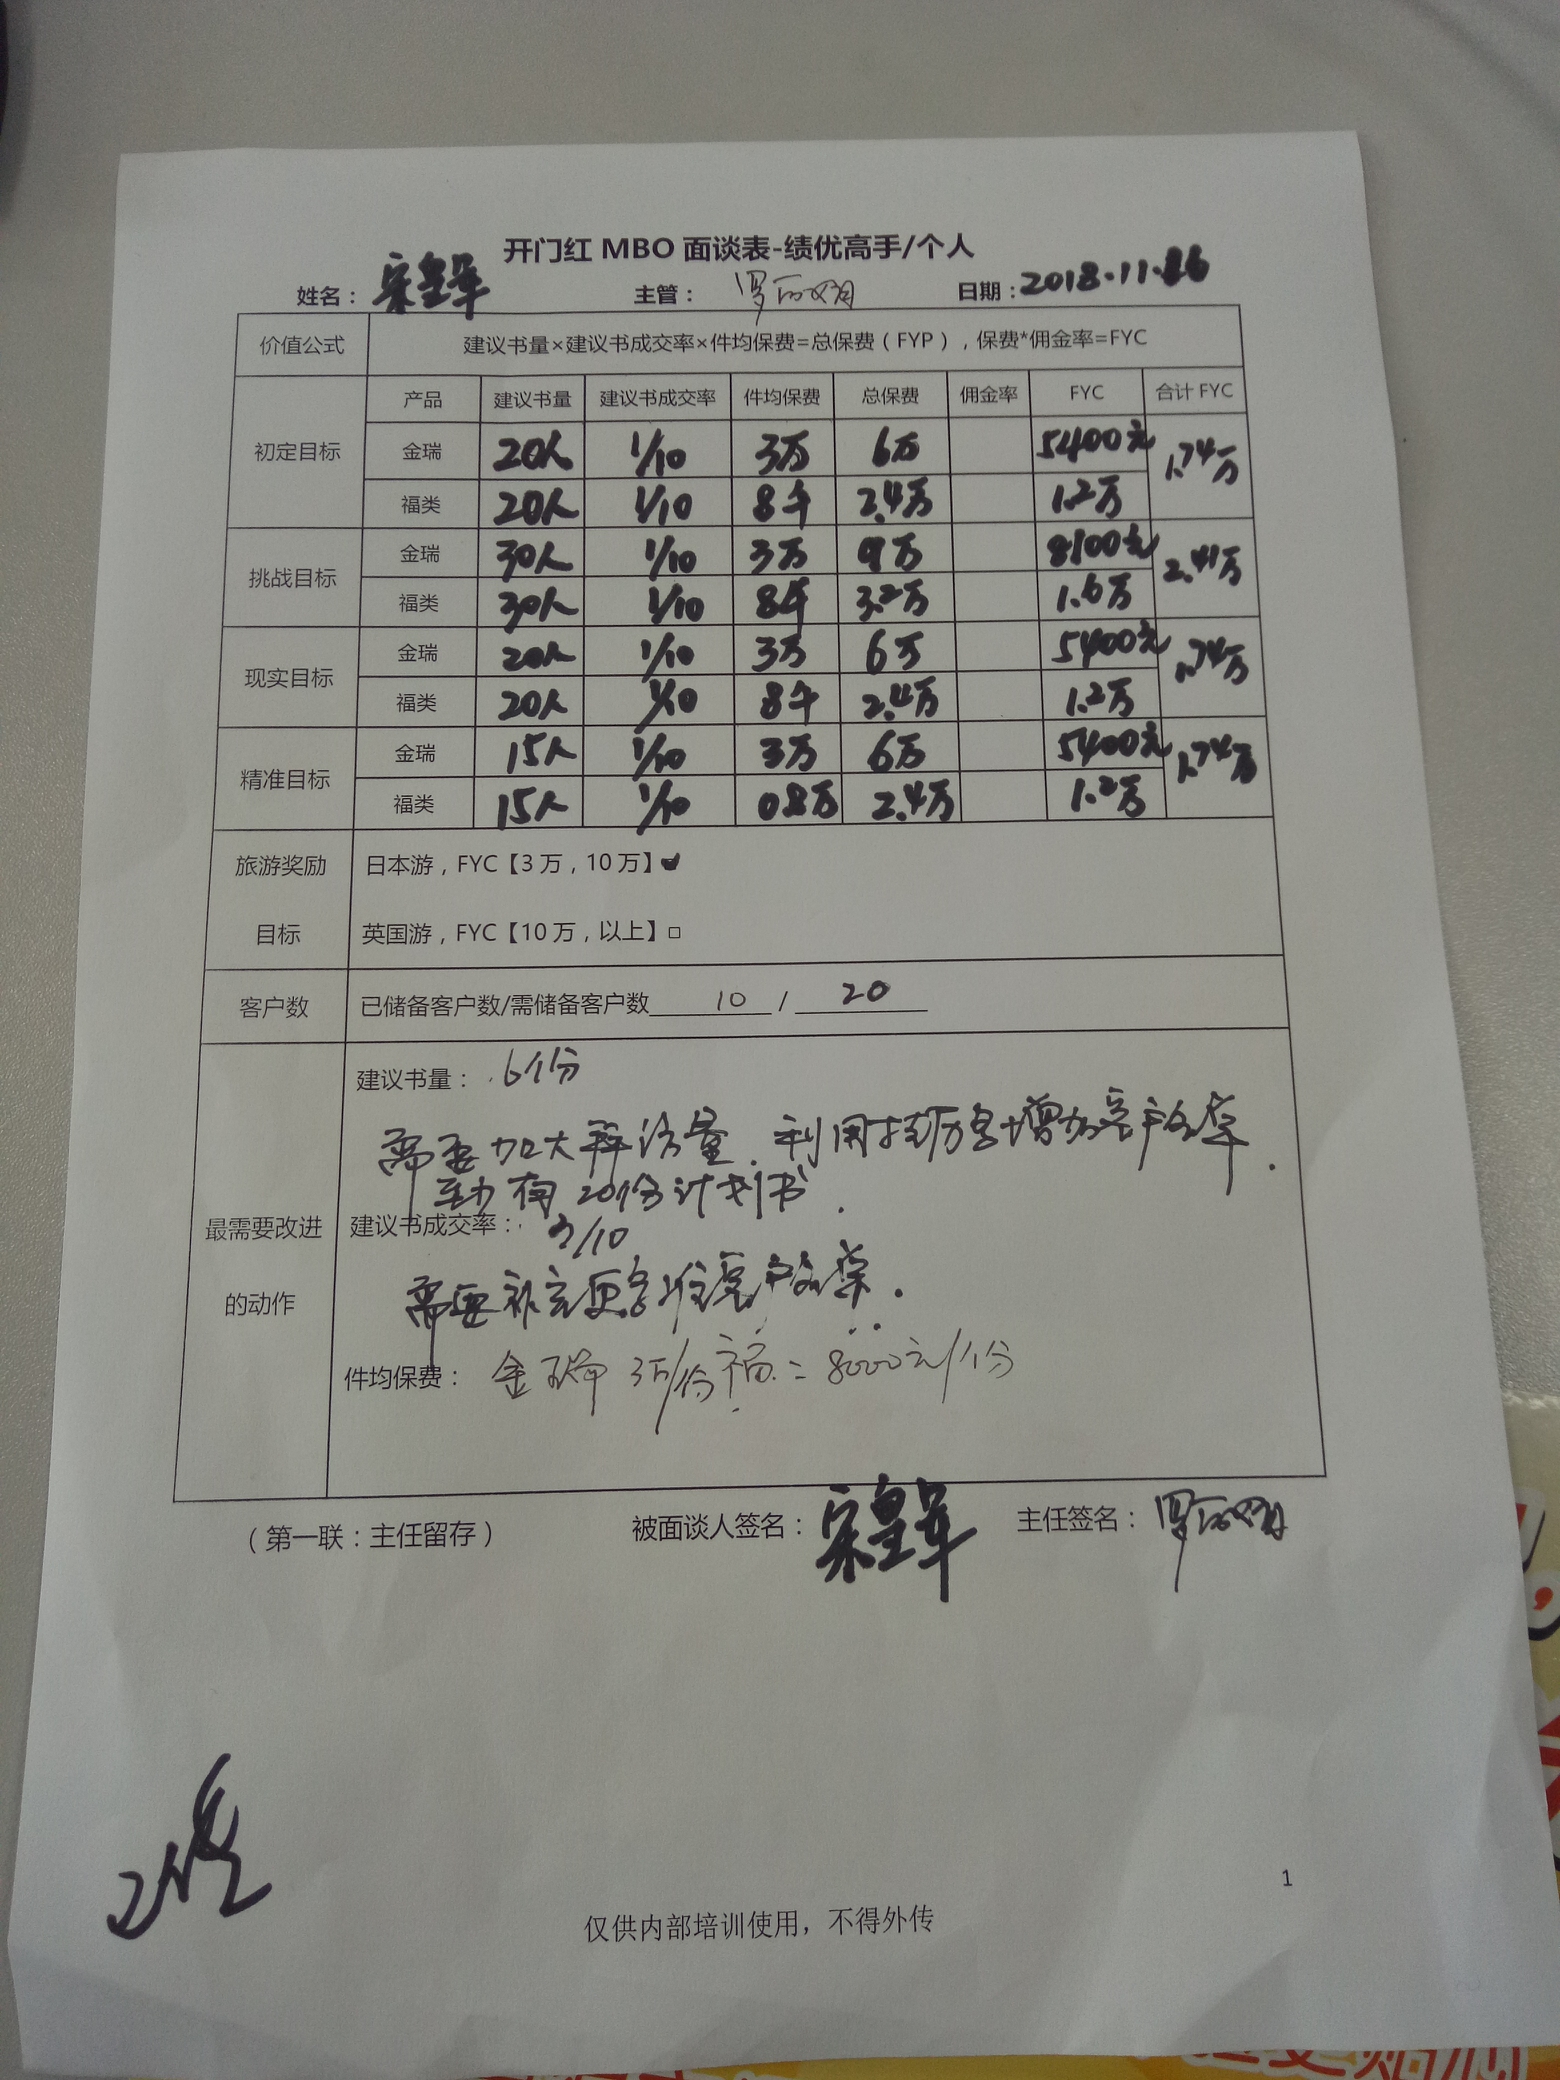 开门红 MBO 面谈表-绩优高手/个人
姓名： 宋皇军 主管： 罗丽娟 日期：2018.11.26
价值公式 建议书量×建议书成交率×件均保费=总保费（FYP），保费*佣金率=FYC
产品 建议书量 建议书成交率 件均保费 总保费 佣金率 FYC 合计 FYC
初定目标 金瑞 20人 1/10 3万 6万 5400元 1.74万
福类 20人 1/10 8千 2.4万 1.2万
挑战目标 金瑞 30人 1/10 3万 9万 8100元 2.41万
福类 30人 1/10 8千 3.2万 1.6万
现实目标 金瑞 20人 1/10 3万 6万 5400元 1.74万
福类 20人 1/10 8千 2.4万 1.2万
精准目标 金瑞 15人 1/10 3万 6万 5400元 1.74万
福类 15人 1/10 0.8万 2.4万 1.2万
旅游奖励 日本游，FYC【3 万，10 万】
目标 英国游，FYC【10 万，以上】□
客户数 已储备客户数/需储备客户数 10 / 20
建议书量： 6份
需要加大拜访量，利用 增加客户名单．
有20份计划书．
最需要改进 建议书成交率： 3/10
的动作 需要补充更多准客户名单．
件均保费： 金瑞 3万/份 福＝8000元/份
（第一联：主任留存） 被面谈人签名： 宋皇军 主任签名： 罗丽娟
1
仅供内部培训使用，不得外传